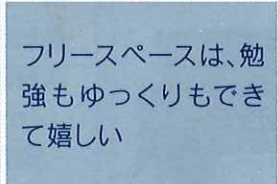 フリースペースは、勉
強もゆっくりもでき
て嬉しい